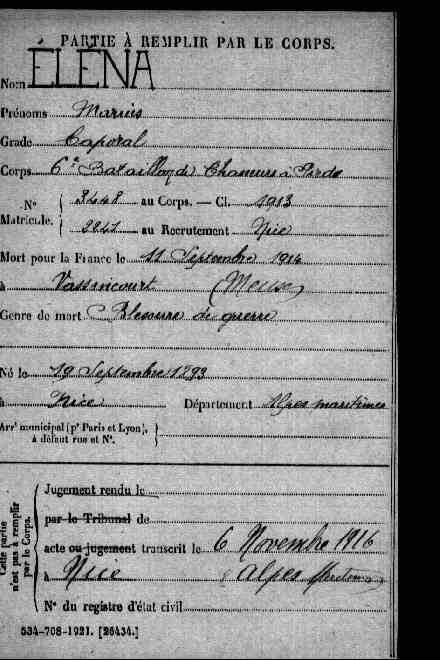 PARTIE À REMPLIR PAR LE CORPS.
Nom ÉLÉNA
Prénoms Marius
Grade Caporal
Corps 6e Bataillon de Chasseurs à Pieds
N° Matricule. { 3448 au Corps. — Cl. 1913
2247 au Recrutement Nice
Mort pour la France le 11 Septembre 1914
à Vassincourt (Meuse)
Genre de mort Blessure de guerre
Né le 19 Septembre 1893
à Nice Département Alpes maritimes
Arrt municipal (pr Paris et Lyon), à défaut rue et N°.
Cette partie n'est pas à remplir par le Corps.
Jugement rendu le
par le Tribunal de
acte ou jugement transcrit le 6 Novembre 1916
à Nice Alpes Maritimes
N° du registre d'état civil
534-708-1921. [26434.]